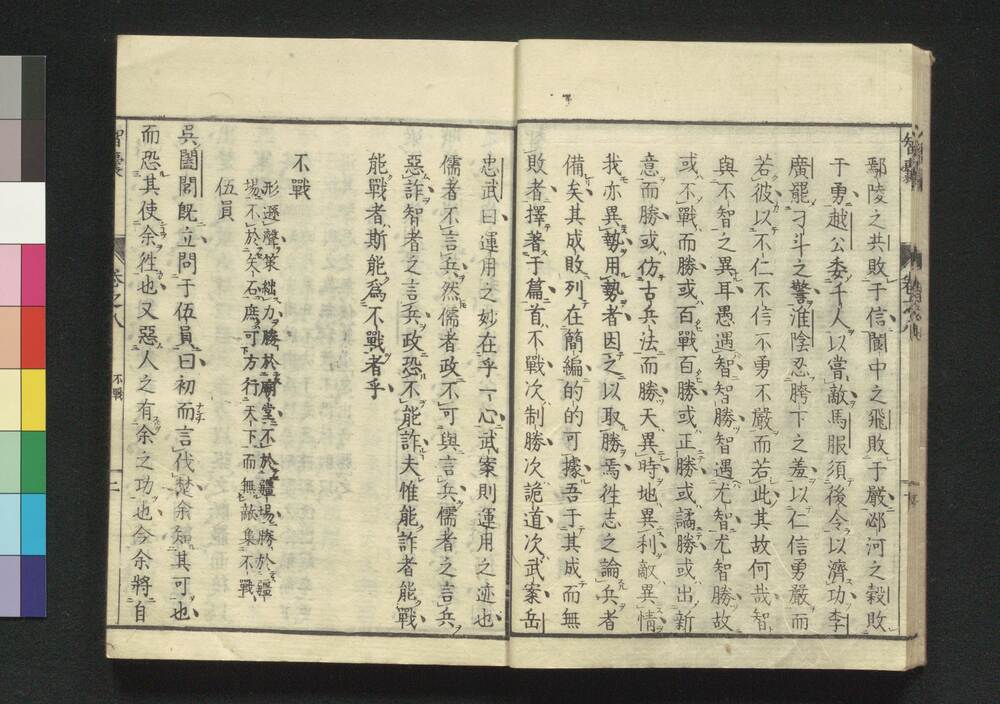 鄢陵之共敗于信閬中之飛敗于嚴邲河之縠敗
于勇越公委千人以嘗敵馬服須後令以濟功李
廣罷刁斗之警淮陰忍胯下之羞以仁信勇嚴而
若彼以不仁不信不勇不嚴而若此其故何哉智
與不智之異耳愚遇智智勝智遇尤智尤智勝故
或不戰而勝或百戰百勝或正勝或譎勝或出新
意而勝或仿古兵法而勝天異時地異利敵異情
我亦異勢用勢者因之以取勝焉徃志之論兵者
備矣其成敗列在簡編的的可據吾于其成而無
敗者擇著于篇首不戰次制勝次詭道次武案岳
忠武曰運用之妙在乎一心武案則運用之迹也
儒者不言兵然儒者政不可與言兵儒者之言兵
惡詐智者之言兵政恐不能詐夫惟能詐者能戰
能戰者斯能爲不戰者乎
不戰
形遜聲策絀力勝於廟堂不於疆場勝於疆
場不於矢石庶可方行天下而無敵集不戰
伍員
吳闔閭既立問于伍員曰初而言伐楚余知其可也
而恐其使余徃也又惡人之有余之功也今余將自
智囊
卷之八
不戰
二